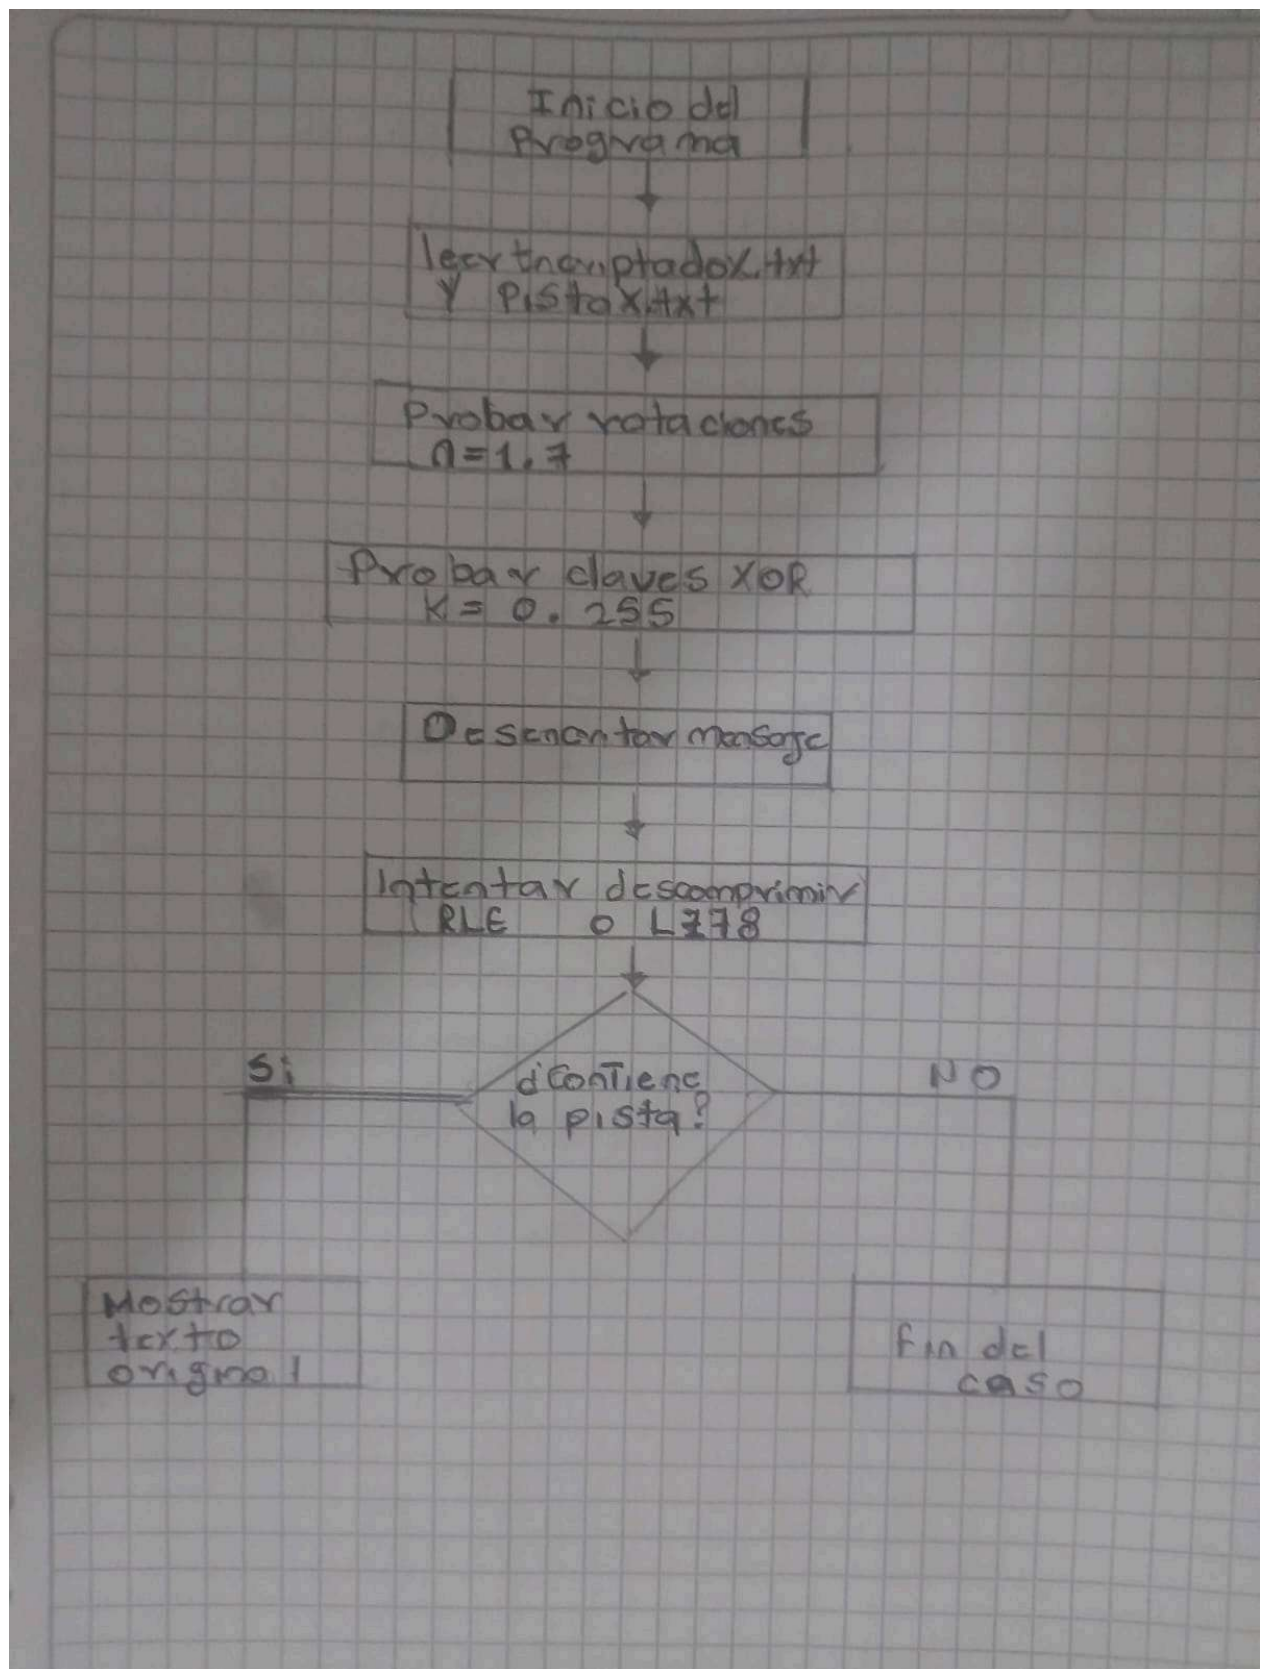 Inicio del
Programa
leer EncriptadoX.txt
y PistaX.txt
Probar rotaciones
n=1.7
Probar claves XOR
K= 0. 255
mensaje
Intentar descomprimir
RLE o LZ78
¿Contiene
la pista?
Si
NO
Mostrar
texto
original
fin del
caso